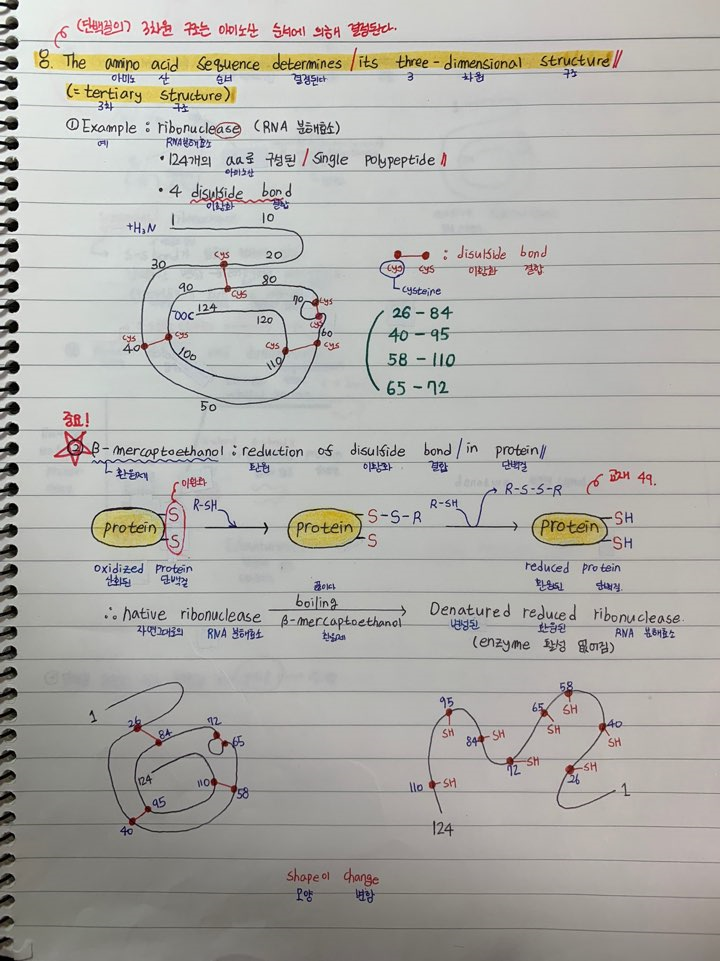 (단백질의) 3차원 구조는 아미노산 순서에 의해 결정된다.
8. The amino acid sequence determines / its three-dimensional structure //
아미노 산 순서 결정된다 3 차원 구조
(= tertiary structure)
3차 구조
① Example : ribonuclease (RNA 분해효소)
예 RNA분해효소
• 124개의 aa로 구성된 / single polypeptide //
아미노산
• 4 disulside bond
이황화 결합
+H₃N 1 10
30 20
cys
90 cys 80
70 cys
cys
OOC 124 120 60
cys 40 cys cys cys
100 110
50
: disulside bond
cys cys 이황화 결합
cysteine
26 - 84
40 - 95
58 - 110
65 - 72
중요!
② β-mercaptoethanol : reduction of disulside bond / in protein //
환원제 환원 이황화 결합 단백질
이황화
교재 49.
protein S S R-SH protein S-S-R S R-SH R-S-S-R protein SH SH
oxidized protein reduced protein
산화된 단백질 환원된 단백질
끓이다
∴ native ribonuclease boiling β-mercaptoethanol Denatured reduced ribonuclease.
자연그대로의 RNA 분해효소 환원제 변성된 환원된 RNA 분해효소
(enzyme 활성 없어짐)
1 26 84 72 65
124 110 58
95 40
95 SH 84 SH 72 SH 65 SH 58 SH 40 SH
110 SH 26 SH 1
124
shape이 change
모양 변함